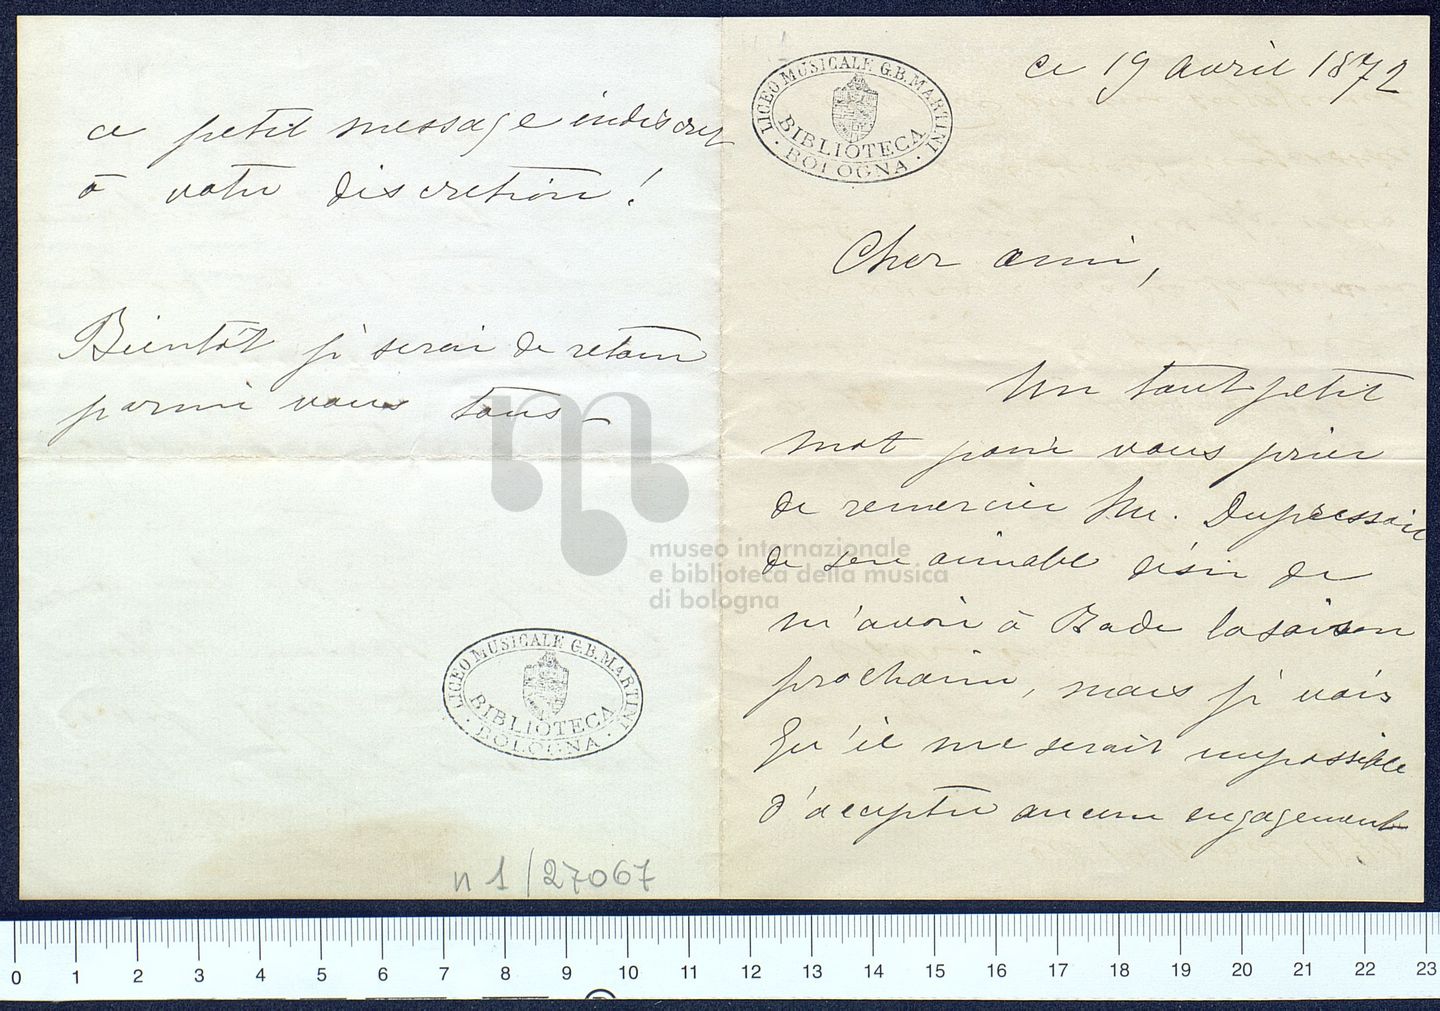 ce petit message indiscret
à votre discretion!
Bientôt je serai de retour
parmi vous tous—
LICEO MUSICALE G.B. MARTINI
BIBLIOTECA
· BOLOGNA ·
n 1/27067
LICEO MUSICALE G.B. MARTINI
BIBLIOTECA
· BOLOGNA ·
ce 19 avril 1872
Cher ami,
Un tout petit
mot pour vous prier
de remercier Mr. Dupressoir
de son aimable désir de
m'avoir à Bade la saison
prochaine, mais je vois
qu'il me serait impossible
d'accepter aucun engagement
museo internazionale
e biblioteca della musica
di bologna
0 1 2 3 4 5 6 7 8 9 10 11 12 13 14 15 16 17 18 19 20 21 22 23